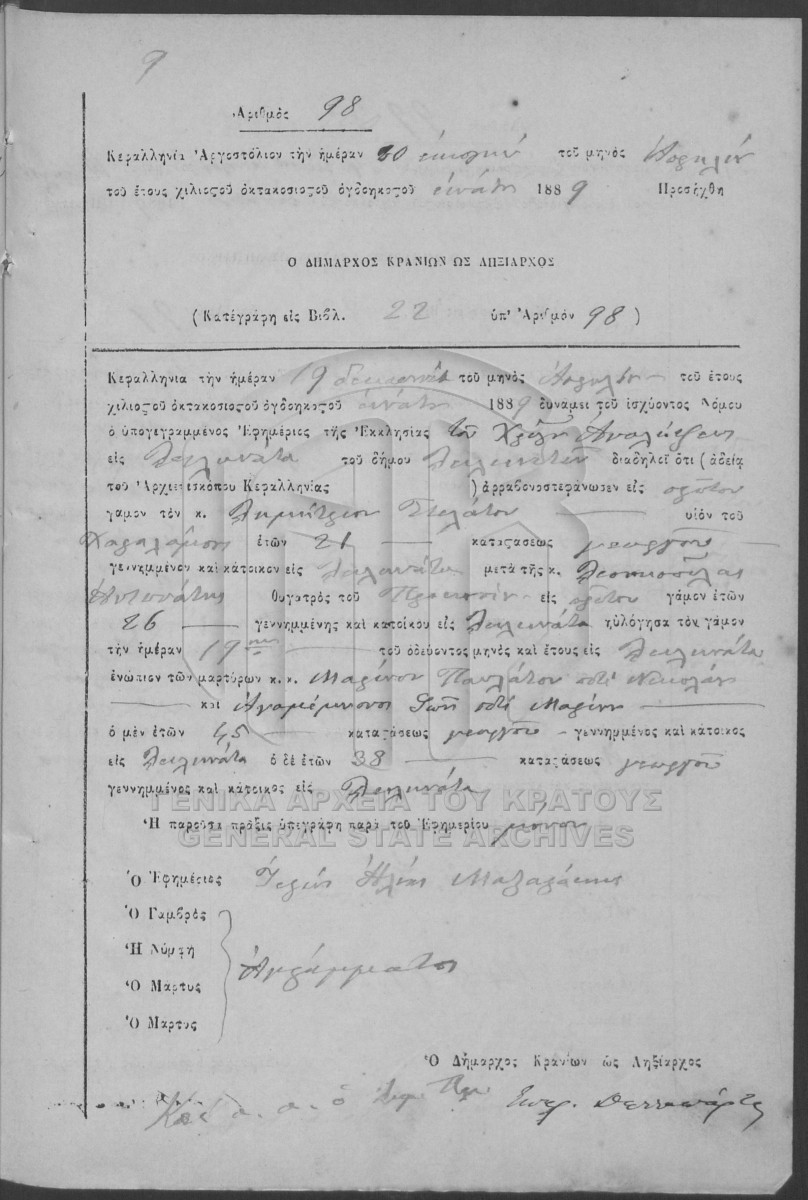 9
Ἀριθμὸς 98
Κεφαλληνία Ἀργοστόλιον τὴν ἡμέραν 20 εἰκοστὴν τοῦ μηνὸς Ἀπριλίου
τοῦ ἔτους χιλιοστοῦ ὀκτακοσιοστοῦ ὀγδοηκοστοῦ ἐννάτου 1889 Προσήχθη
Ο ΔΗΜΑΡΧΟΣ ΚΡΑΝΙΩΝ ΩΣ ΛΗΞΙΑΡΧΟΣ
(Κατεγράφη εἰς Βιβλ. 22 ὑπ' Ἀριθμὸν 98)
Κεφαλληνια τὴν ἡμέραν 19 τοῦ μηνὸς Ἀπριλίου τοῦ ἔτους
χιλιοστοῦ ὀκτακοσιοστοῦ ὀγδοηκοστοῦ ἐννάτου 1889 δυνάμει τοῦ ἰσχύοντος Νόμου
ὁ ὑπογεγραμμένος Ἐφημέριος τῆς Ἐκκλησίας τοῦ Ἀναλήψεως
εἰς Δειλινάτα τοῦ δήμου Δειλινάτων διαδηλεῖ ὅτι (ἀδείᾳ
τοῦ Ἀρχιεπισκόπου Κεφαλληνίας ) ἀρραβονοστεφάνωσεν εἰς πρῶτον
γάμον τὸν κ. Δημήτριον υἱὸν τοῦ
Χαραλάμπου ἐτῶν 21 καταστάσεως γεωργοῦ
γεννημμένον καὶ κάτοικον εἰς Δειλινάτα μετὰ τῆς κ. Δεσποινούλας
Ἀντωνάτης θυγατρὸς τοῦ εἰς πρῶτον γάμον ἐτῶν
26 γεννημμένης καὶ κατοίκου εἰς Δειλινάτα ηὐλόγησα τὸν γάμον
τὴν ἡμέραν 19 τοῦ ὁδεύοντος μηνὸς καὶ ἔτους εἰς Δειλινάτα
ἐνώπιον τῶν μαρτύρων κ. κ. Μαρίνου Παυλάτου ποτὲ Νικολάου
καὶ Ἀγαμέμνονος ποτὲ Μαρίνου
ὁ μὲν ἐτῶν 45 καταστάσεως γεωργοῦ γεννημμένος καὶ κάτοικος
εἰς Δειλινάτα ὁ δὲ ἐτῶν 38 καταστάσεως γεωργοῦ
γεννημμένος καὶ κάτοικος εἰς Δειλινάτα
Ἡ παροῦσα πρᾶξις ὑπεγράφη παρὰ τοῦ Ἐφημερίου μόνον
ΓΕΝΙΚΑ ΑΡΧΕΙΑ ΤΟΥ ΚΡΑΤΟΥΣ
GENERAL STATE ARCHIVES
Ὁ Ἐφημέριος Ἱερεὺς Ἠλίας
Ὁ Γαμβρὸς
Ἡ Νύμφη
Ἀγράμματοι
Ὁ Μαρτυς
Ὁ Μαρτυς
Ὁ Δήμαρχος Κρανίων ὡς Ληξίαρχος